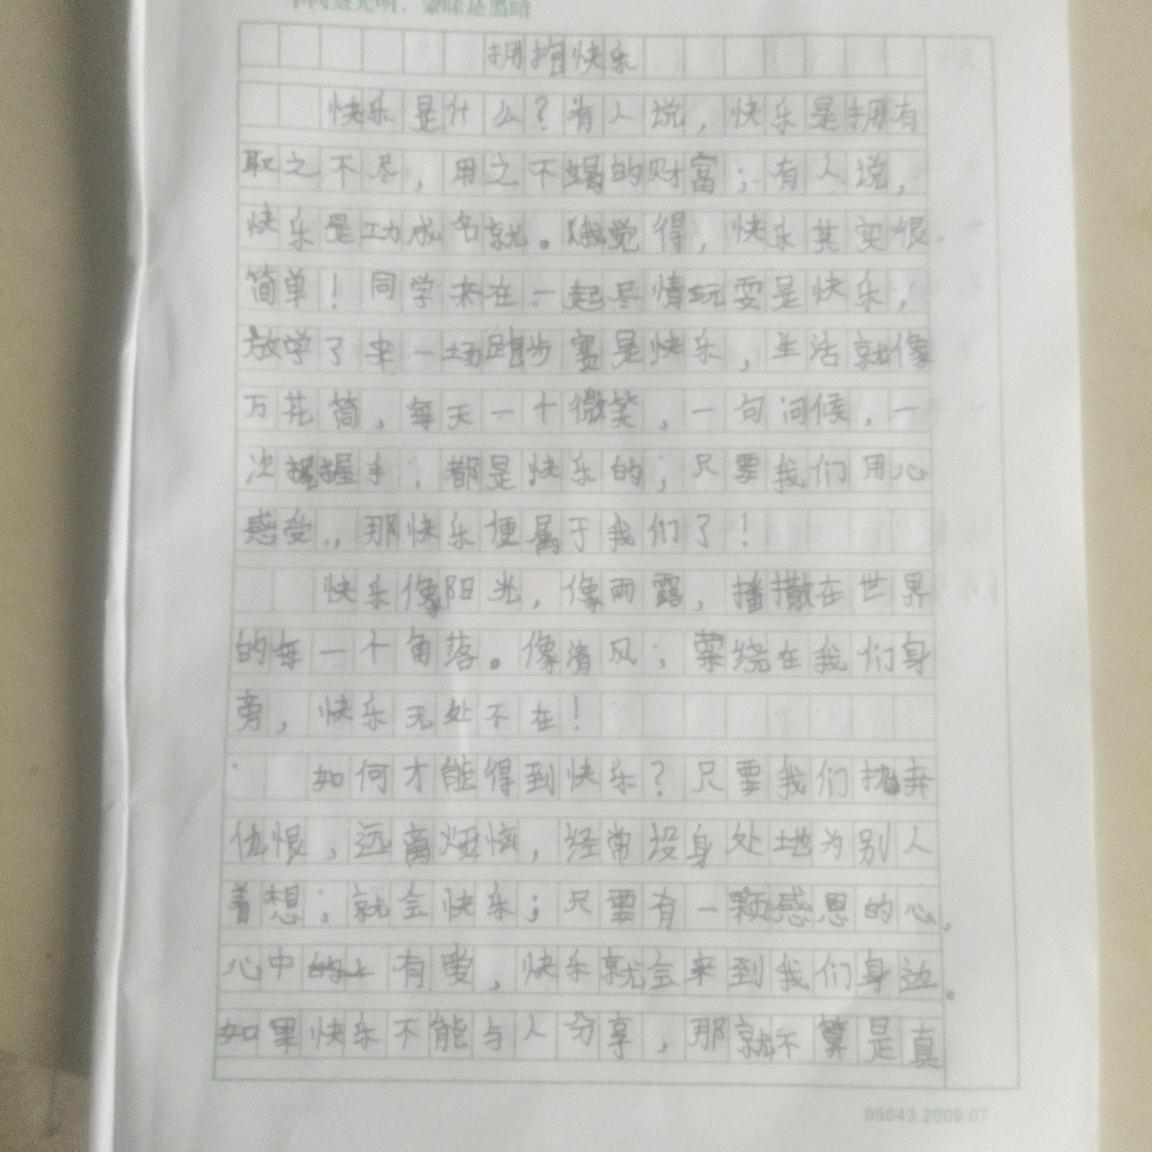 学问是光明，蒙昧是黑暗
拥抱快乐
快乐是什么？有人说，快乐是拥有
取之不尽，用之不竭的财富；有人说，
快乐是功成名就。我觉得，快乐其实很
简单！同学来在一起尽情玩耍是快乐，
放学了来一场跑步赛是快乐，生活就像
万花筒，每天一个微笑，一句问候，一
次握手，都是快乐的；只要我们用心
感受，那快乐便属于我们了！
快乐像阳光，像雨露，播撒在世界
的每一个角落。像清风，萦绕在我们身
旁，快乐无处不在！
如何才能得到快乐？只要我们抛弃
仇恨，远离烦恼，经常设身处地为别人
着想，就会快乐；只要有一颗感恩的心，
心中有爱，快乐就会来到我们身边。
如果快乐不能与人分享，那就不算是真
05643.2009.07